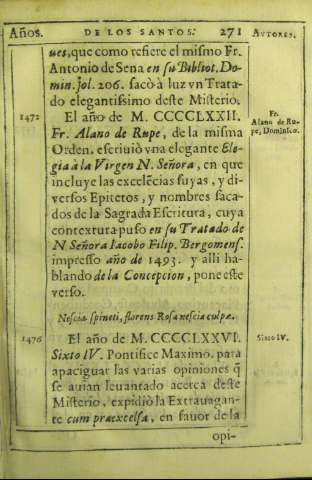 Años. DE LOS SANTOS. 271 AVTORES.
ues, que como refiere el mismo Fr.
Antonio de Sena en su Bibliot. Do-
min. fol. 206. sacò à luz vn Trata-
do elegantissimo deste Misterio.
1472 El año de M. CCCCCLXXII. Fr.
Fr. Alano de Rupe, de la misma Alano de Ru-
Orden, escriuiò vna elegante Elo- pe, Dominico.
gia à la Virgen N. Señora, en que
incluye las excelēcias suyas, y di-
versos Epitetos, y nombres saca-
dos de la Sagrada Escritura, cuya
contextura puso en su Tratado de
N Señora Iacobo Filip. Bergomens.
impresso año de 1493. y alli ha-
blando de la Concepcion, pone este
verso.
Nescia spineti, florens Rosa nescia culpæ.
1476 El año de M. CCCCLXXVI. Sixto IV.
Sixto IV. Pontifice Maximo, para
apaciguar las varias opiniones q̃
se auian leuantado acerca deste
Misterio, expidiò la Extrauagan-
te cum præexcelsa, en fauor de la
opi-